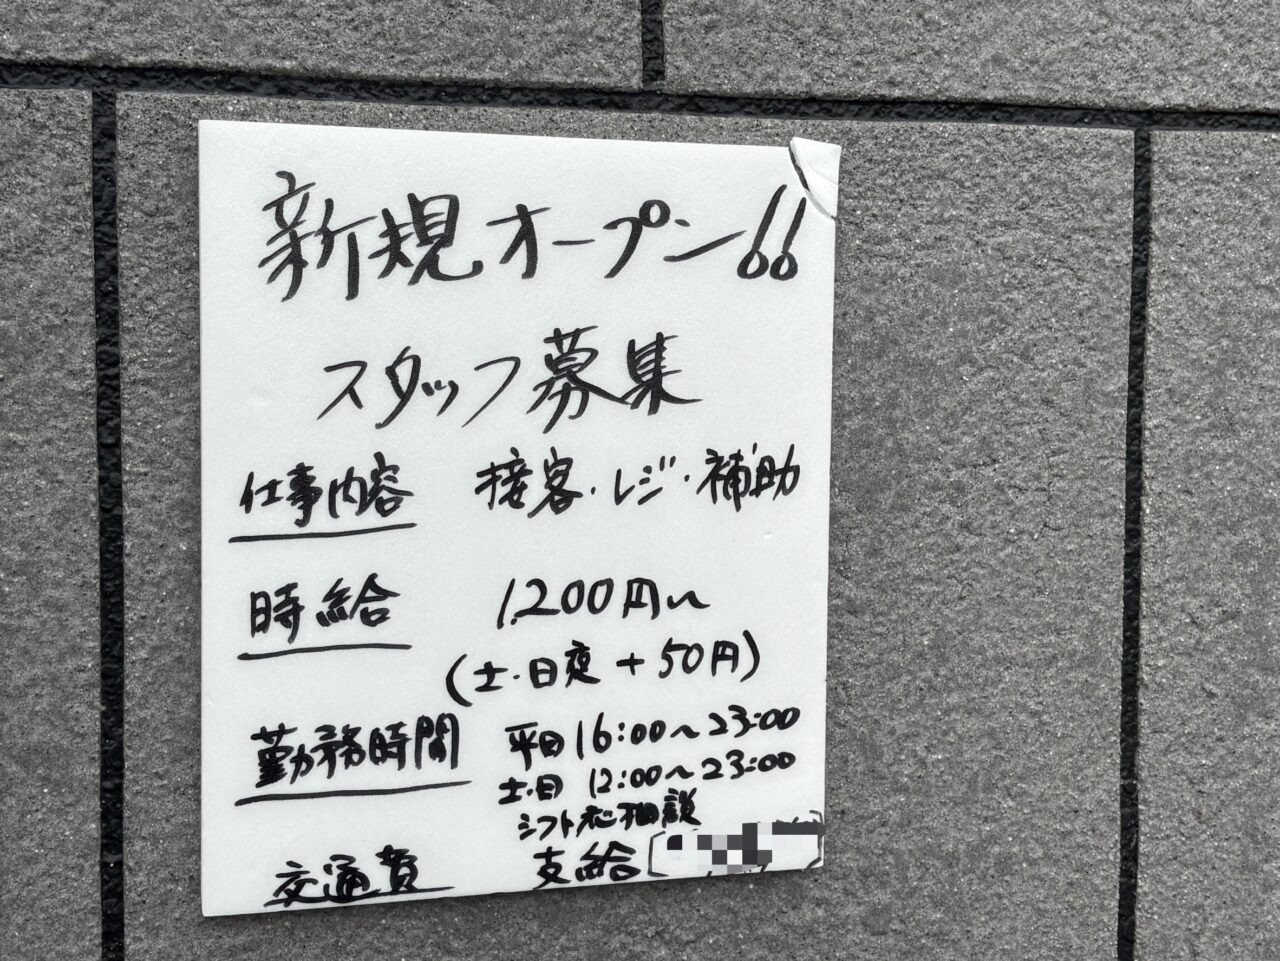 新規オープン!!
スタッフ募集
仕事内容 接客・レジ・補助
時給 1,200円~
(土・日夜 + 50円)
勤務時間 平日 16:00~23:00
土・日 12:00~23:00
シフト応相談
交通費 支給